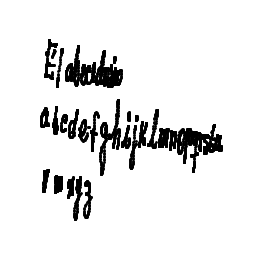 El abecedario
abcdefghijklmnopqrstu
v w x y z